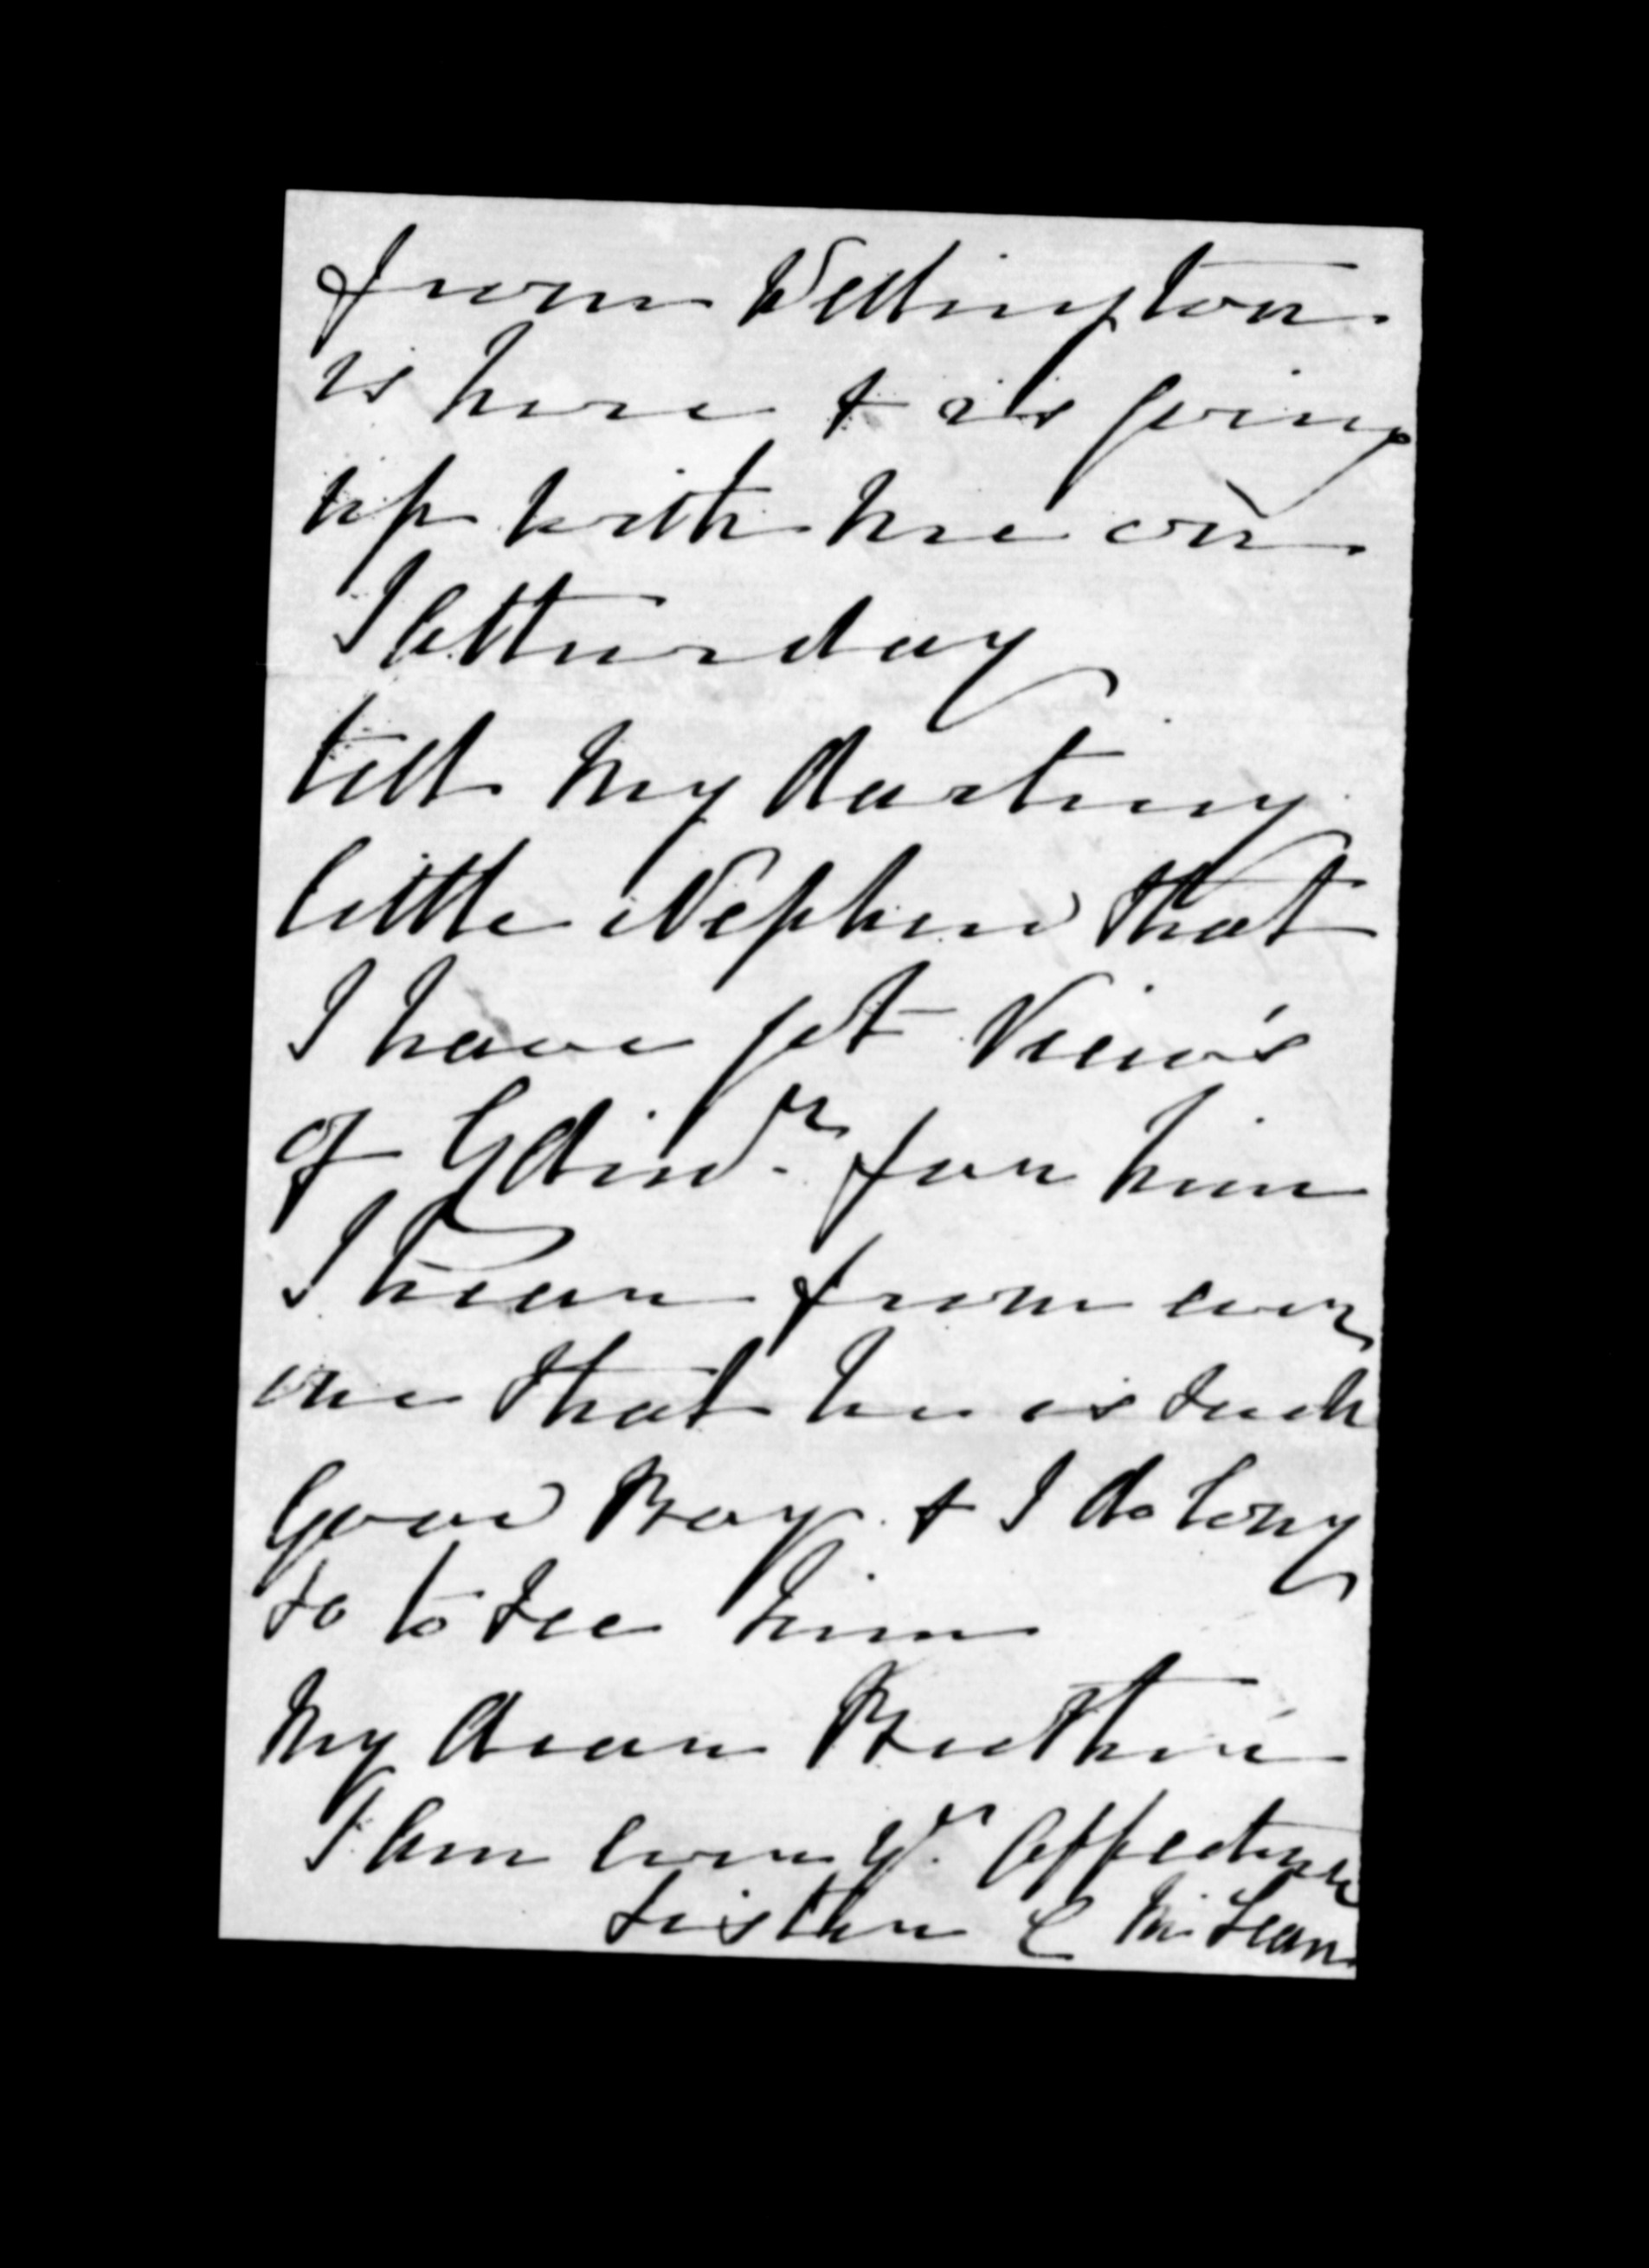 from Wellington
is here & is going
up with me on
Satturday
tell my darling
little Nephew that
I have got View's
of Edinr. for him
I hear from every
one that he is such
Good Boy & I do long
so to see him
My dear Brother
I am ever yr. Affectine
Sister C McLean